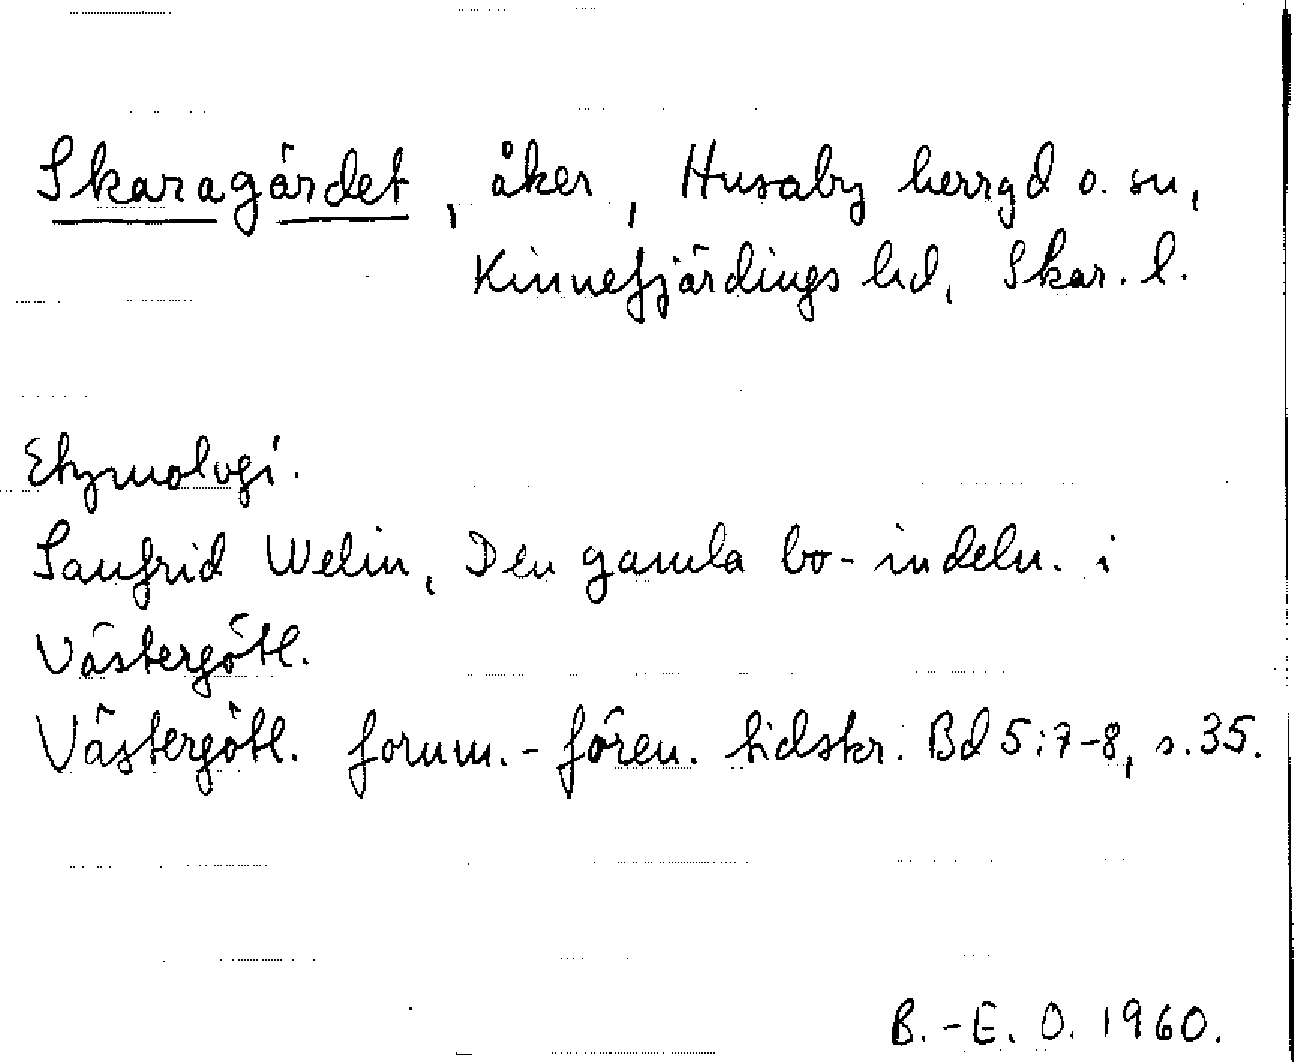 Skaragärdet, åker, Husaby herrgd o. sn,
Kinnefjärdings hd, Skar. l.
Etymologi.
Sanfrid Welin, Den gamla bo-indeln. i
Västergötl.
Västergötl. fornm.-fören. tidskr. Bd 5:7-8, s.35.
B.-E. O. 1960.